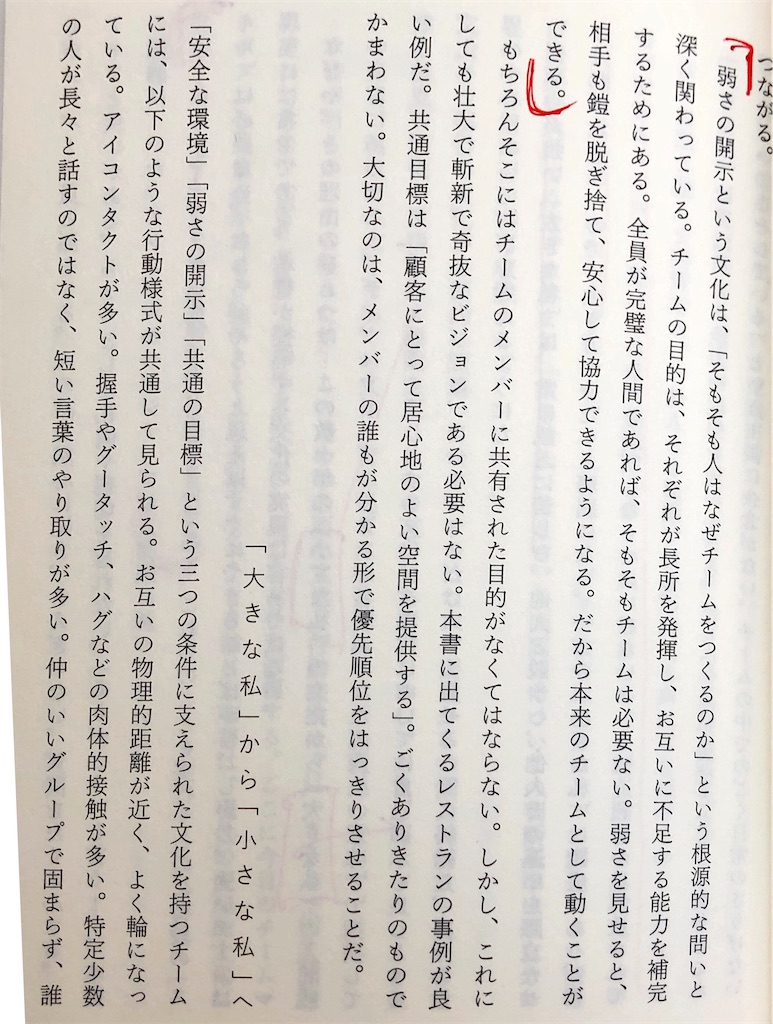 つながる。
弱さの開示という文化は、「そもそも人はなぜチームをつくるのか」という根源的な問いと
深く関わっている。チームの目的は、それぞれが長所を発揮し、お互いに不足する能力を補完
するためにある。全員が完璧な人間であれば、そもそもチームは必要ない。弱さを見せると、
相手も鎧を脱ぎ捨て、安心して協力できるようになる。だから本来のチームとして動くことが
できる。
もちろんそこにはチームのメンバーに共有された目的がなくてはならない。しかし、これに
しても壮大で斬新で奇抜なビジョンである必要はない。本書に出てくるレストランの事例が良
い例だ。共通目標は「顧客にとって居心地のよい空間を提供する」。ごくありきたりのもので
かまわない。大切なのは、メンバーの誰もが分かる形で優先順位をはっきりさせることだ。
「大きな私」から「小さな私」へ
「安全な環境」「弱さの開示」「共通の目標」という三つの条件に支えられた文化を持つチーム
には、以下のような行動様式が共通して見られる。お互いの物理的距離が近く、よく輪になっ
ている。アイコンタクトが多い。握手やグータッチ、ハグなどの肉体的接触が多い。特定少数
の人が長々と話すのではなく、短い言葉のやり取りが多い。仲のいいグループで固まらず、誰